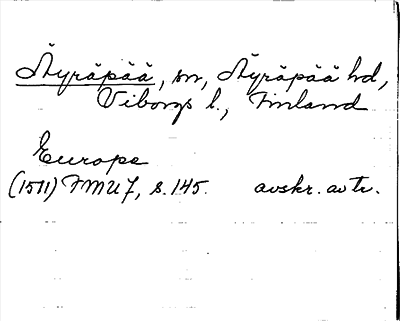 Äyräpää, sn, Äyräpää hd,
Viborgs l., Finland
Europe
(1511) FMU 7, s. 145. avskr. av tr.